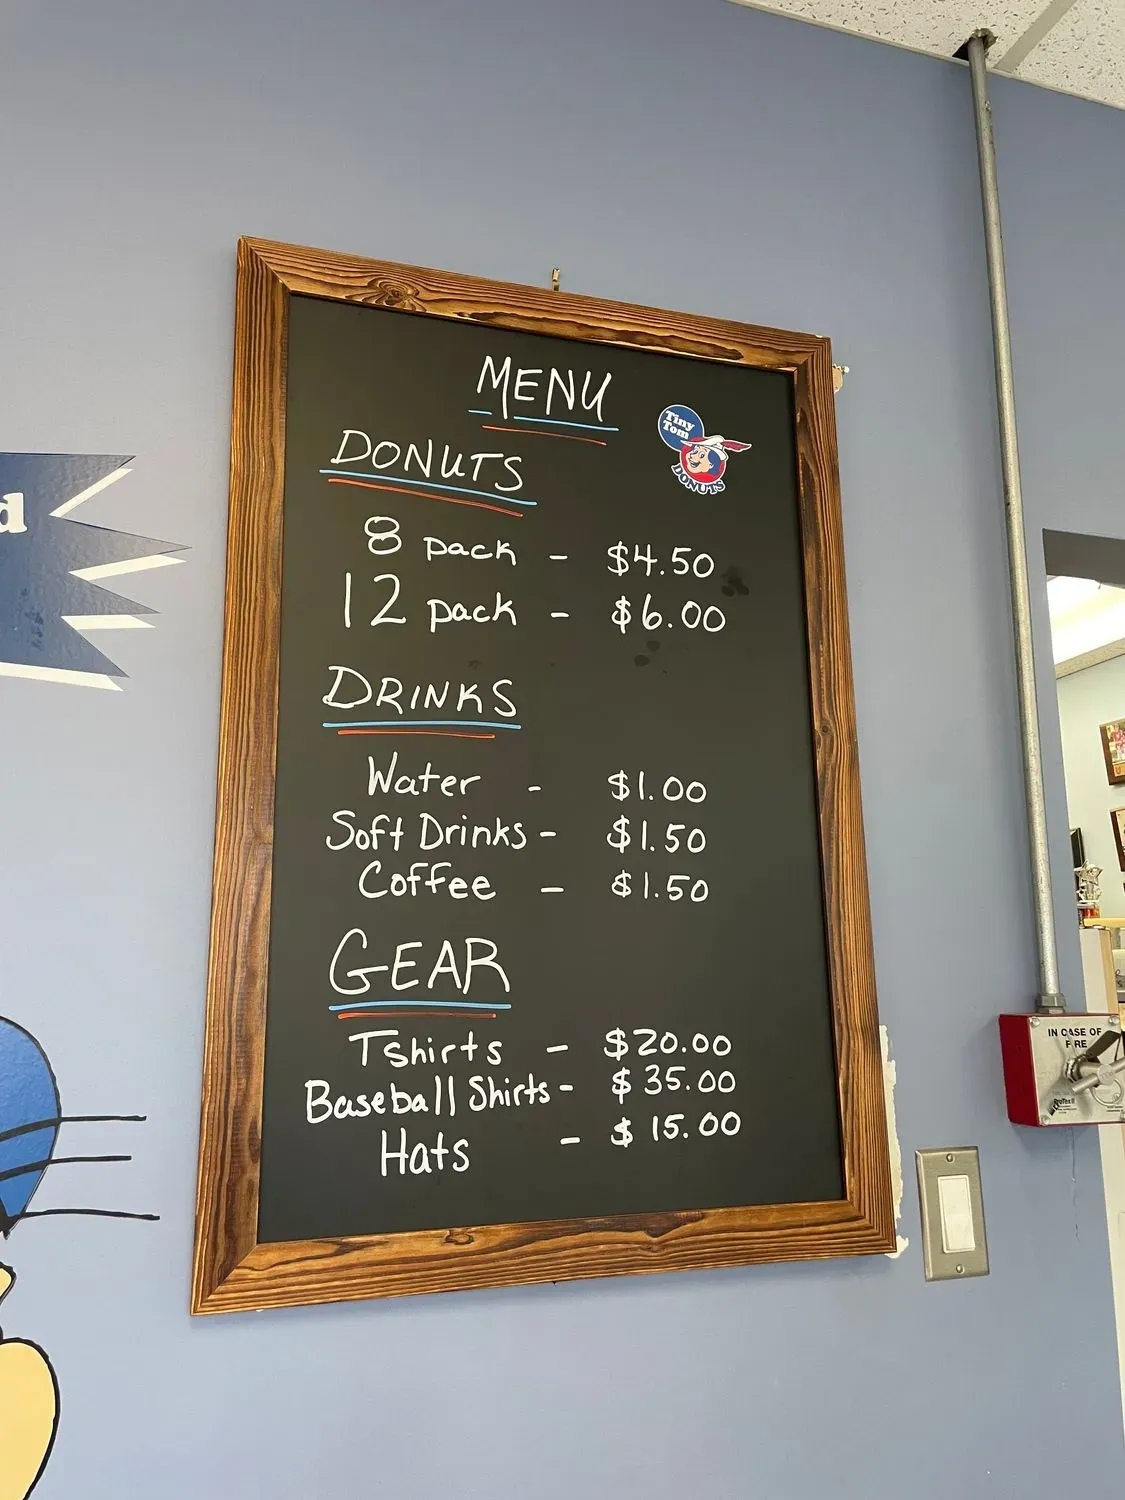 MENU
Tiny
Tom
DONUTS
DONUTS
8 pack - $4.50
12 pack - $6.00
DRINKS
Water - $1.00
Soft Drinks - $1.50
Coffee - $1.50
GEAR
Tshirts - $20.00
Baseball Shirts - $35.00
Hats - $15.00
d
IN CASE OF
FIRE